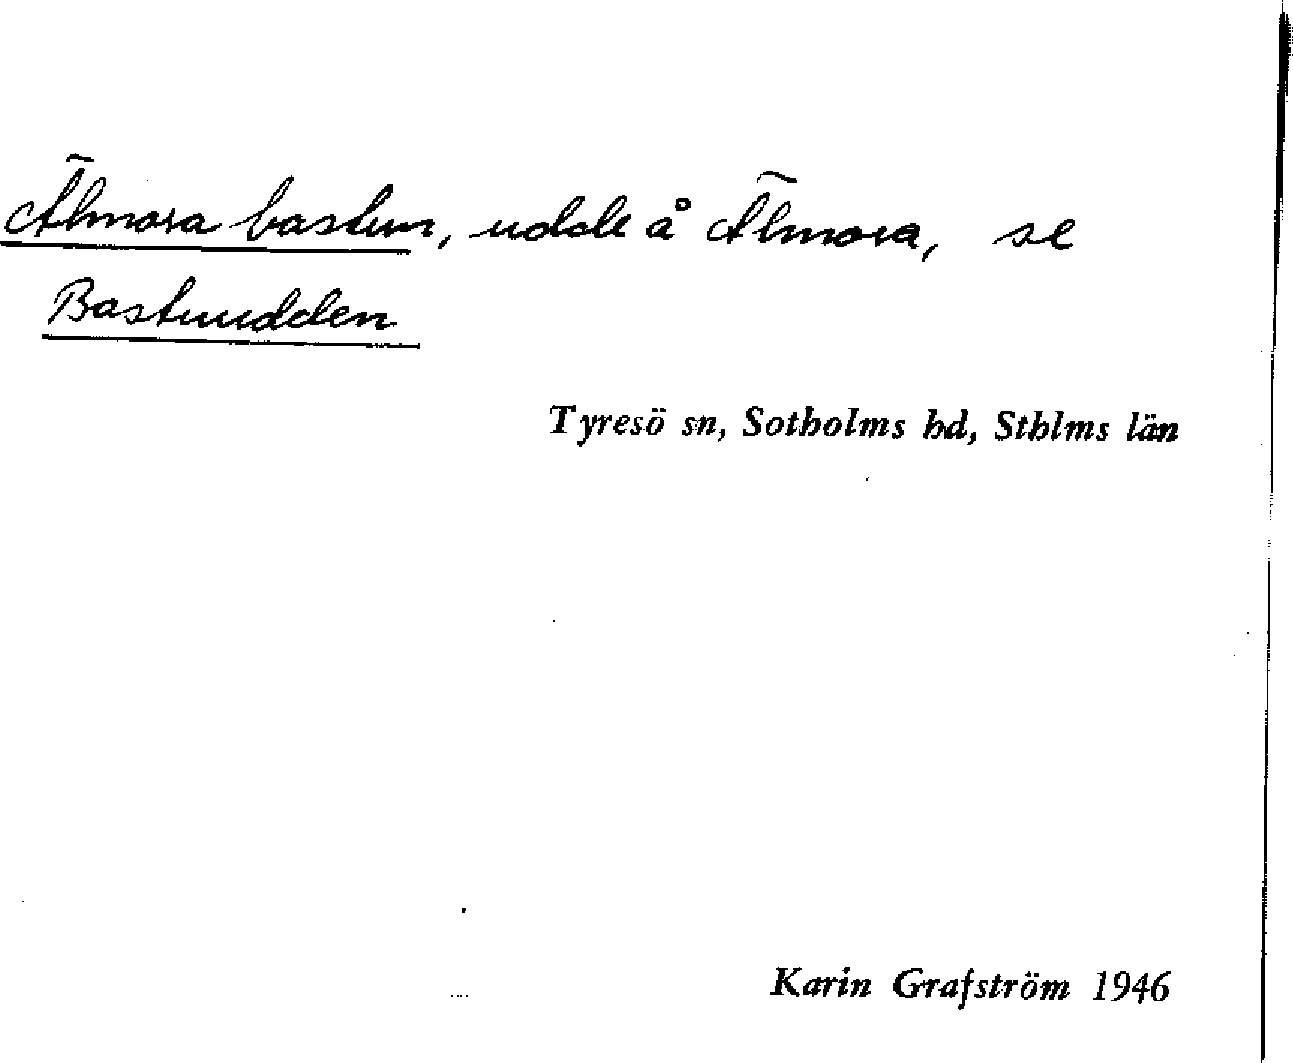 Älmora bastun, udde å Älmora, se
Bastuudden
Tyresö sn, Sotholms hd, Sthlms län
Karin Grafström 1946